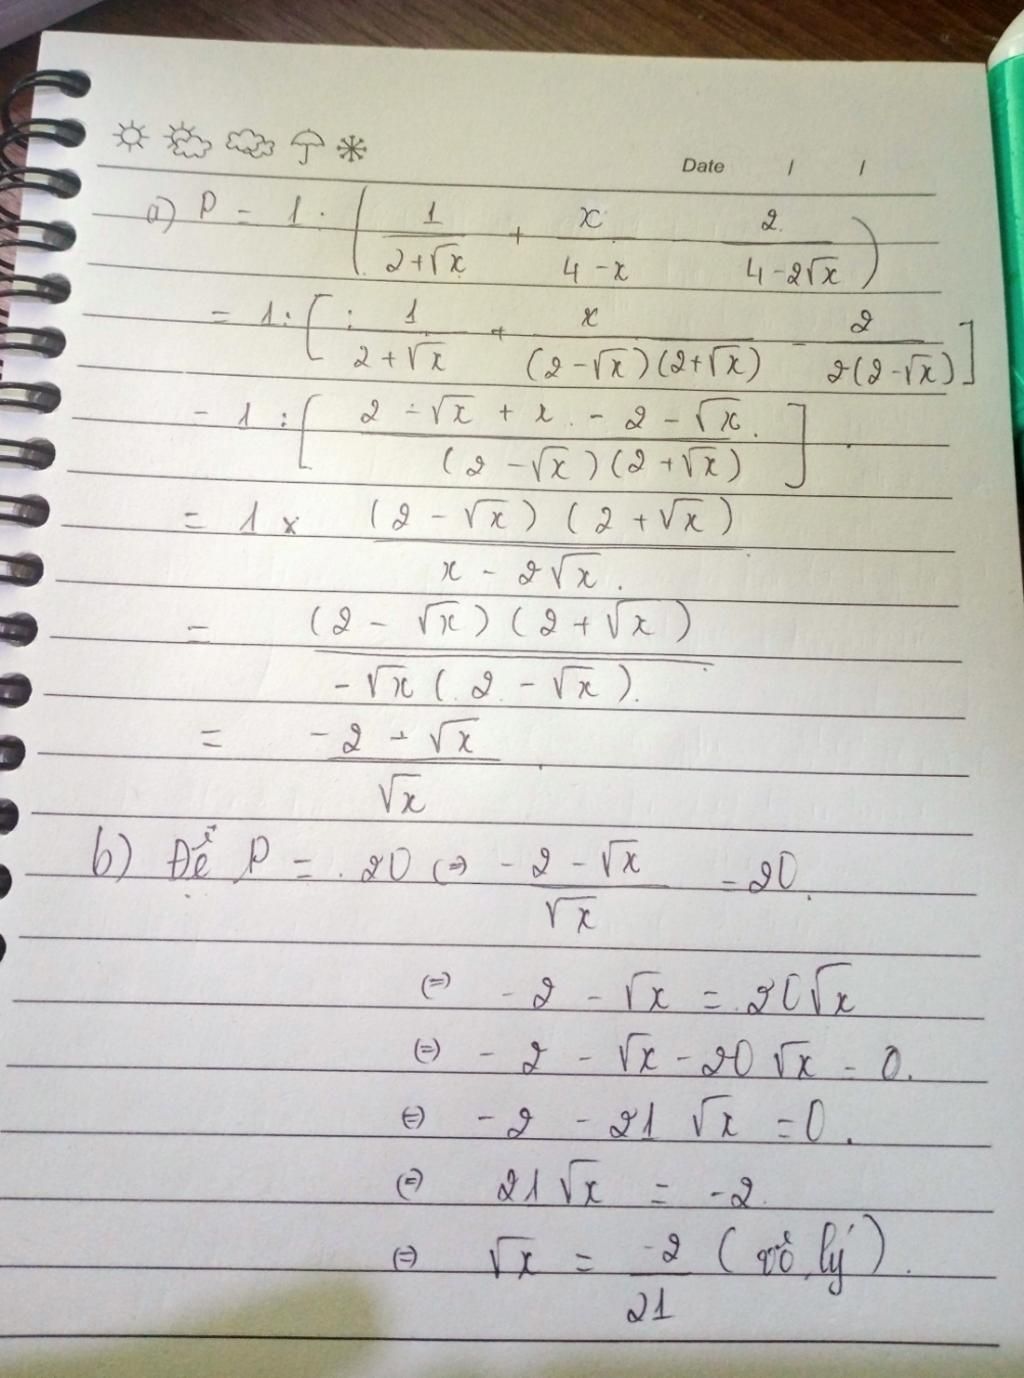 Date / /
a) P = 1 : ( 1/(2+√x) + x/(4-x) - 2/(4-2√x) )
= 1 : [ 1/(2+√x) + x/((2-√x)(2+√x)) - 2/(2(2-√x)) ]
= 1 : [ (2 - √x + x - 2 - √x)/((2-√x)(2+√x)) ]
= 1 x (2-√x)(2+√x)/(x - 2√x)
= (2-√x)(2+√x)/(-√x(2-√x))
= (-2 - √x)/√x
b) Để P = 20 (=) (-2 - √x)/√x = 20
(=) -2 - √x = 20√x
(=) -2 - √x - 20√x = 0.
(=) -2 - 21√x = 0.
(=) 21√x = -2
(=) √x = -2/21 (vô lý).